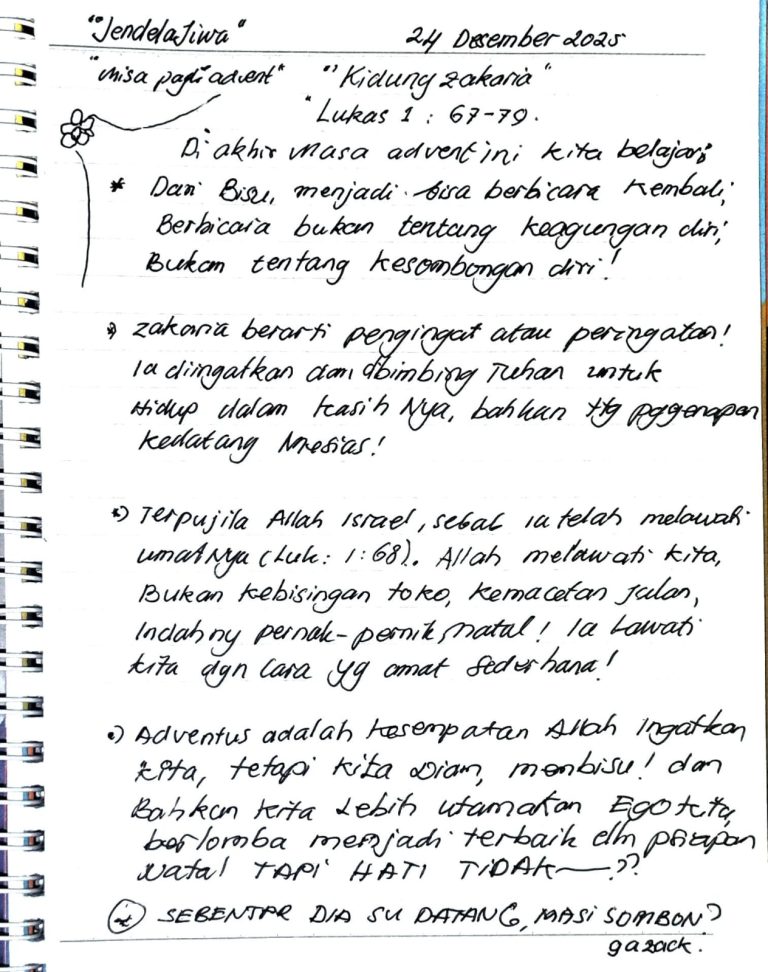 "Jendela Jiwa"
24 Desember 2025
"Misa pagi advent" "Kidung Zakaria"
"Lukas 1 : 67-79.
Di akhir masa advent ini kita belajar;
* Dari Bisu, menjadi bisa berbicara kembali;
Berbicara bukan tentang keagungan diri;
Bukan tentang kesombongan diri!
*) Zakaria berarti pengingat atau peringatan!
Ia diingatkan dan dbimbing Tuhan untuk
Hidup dalam kasih Nya, bahkan ttg pggenapan
kedatang Mesias!
*) Terpujila Allah Israel, sebab Ia telah melawati
umatNya (Luk: 1:68). Allah melawati kita,
Bukan kebisingan toko, kemacetan jalan,
Indahny pernak-pernik natal! Ia Lawati
kita dgn cara yg amat sederhana!
•) Adventus adalah kesempatan Allah Ingatkan
kita, tetapi kita Diam, membisu! dan
Bahkan kita Lebih utamakan Ego kita,
berlomba menjadi terbaik dlm
Natal TAPI HATI TIDAK—??
*) SEBENTAR DIA SU DATANG, MASI SOMBON?
gazack.